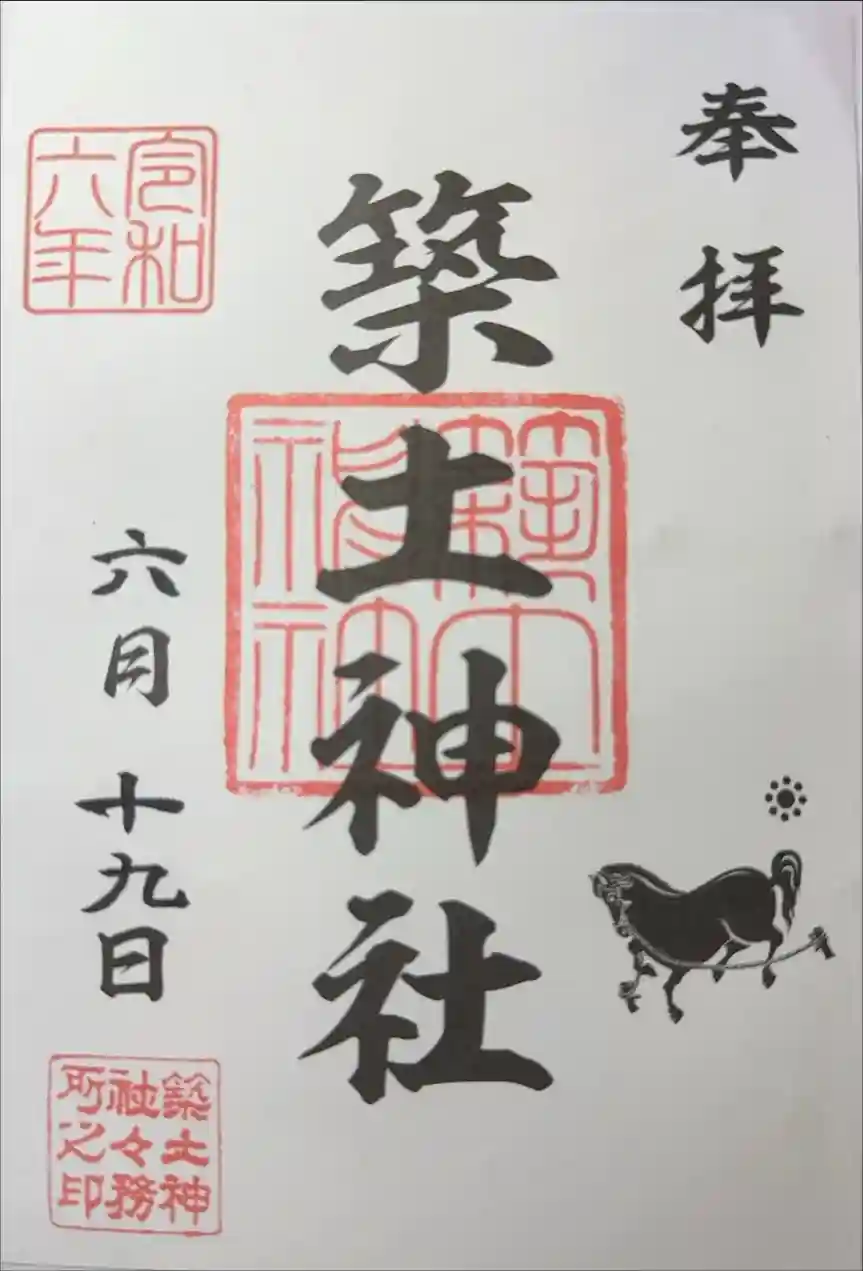 奉拝
築土神社
令和
六年
六月十九日
築土神
社々務
所之印